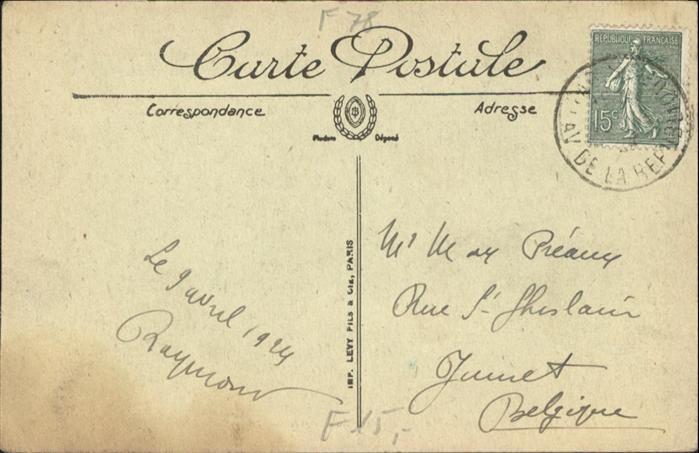 F 78
Carte Postale
Correspondance
Adresse
Modèle Déposé
RÉPUBLIQUE FRANÇAISE
15c
AV DE LA REP
IMP. LEVY FILS & Cie, PARIS
Le 9 avril 1924
Raymond
Mr Max Préaux
Rue St Ghislain
Jumet
Belgique
F 15,-